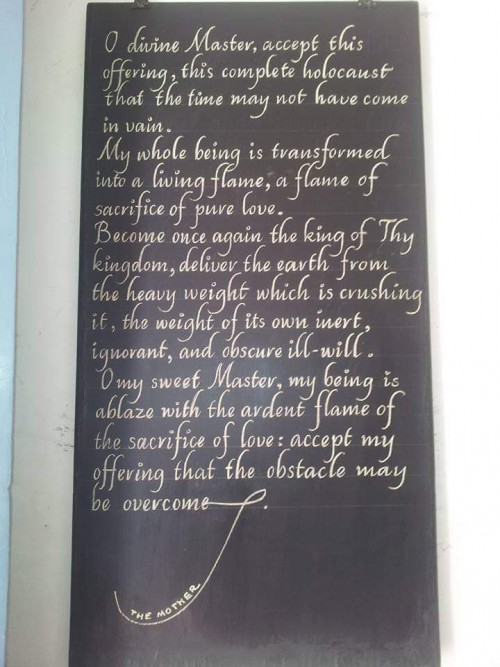 O divine Master, accept this
offering, this complete holocaust
that the time may not have come
in vain.
My whole being is transformed
into a living flame, a flame of
sacrifice of pure love.
Become once again the king of Thy
kingdom, deliver the earth from
the heavy weight which is crushing
it, the weight of its own inert,
ignorant, and obscure ill-will.
O my sweet Master, my being is
ablaze with the ardent flame of
the sacrifice of love: accept my
offering that the obstacle may
be overcome.
THE MOTHER